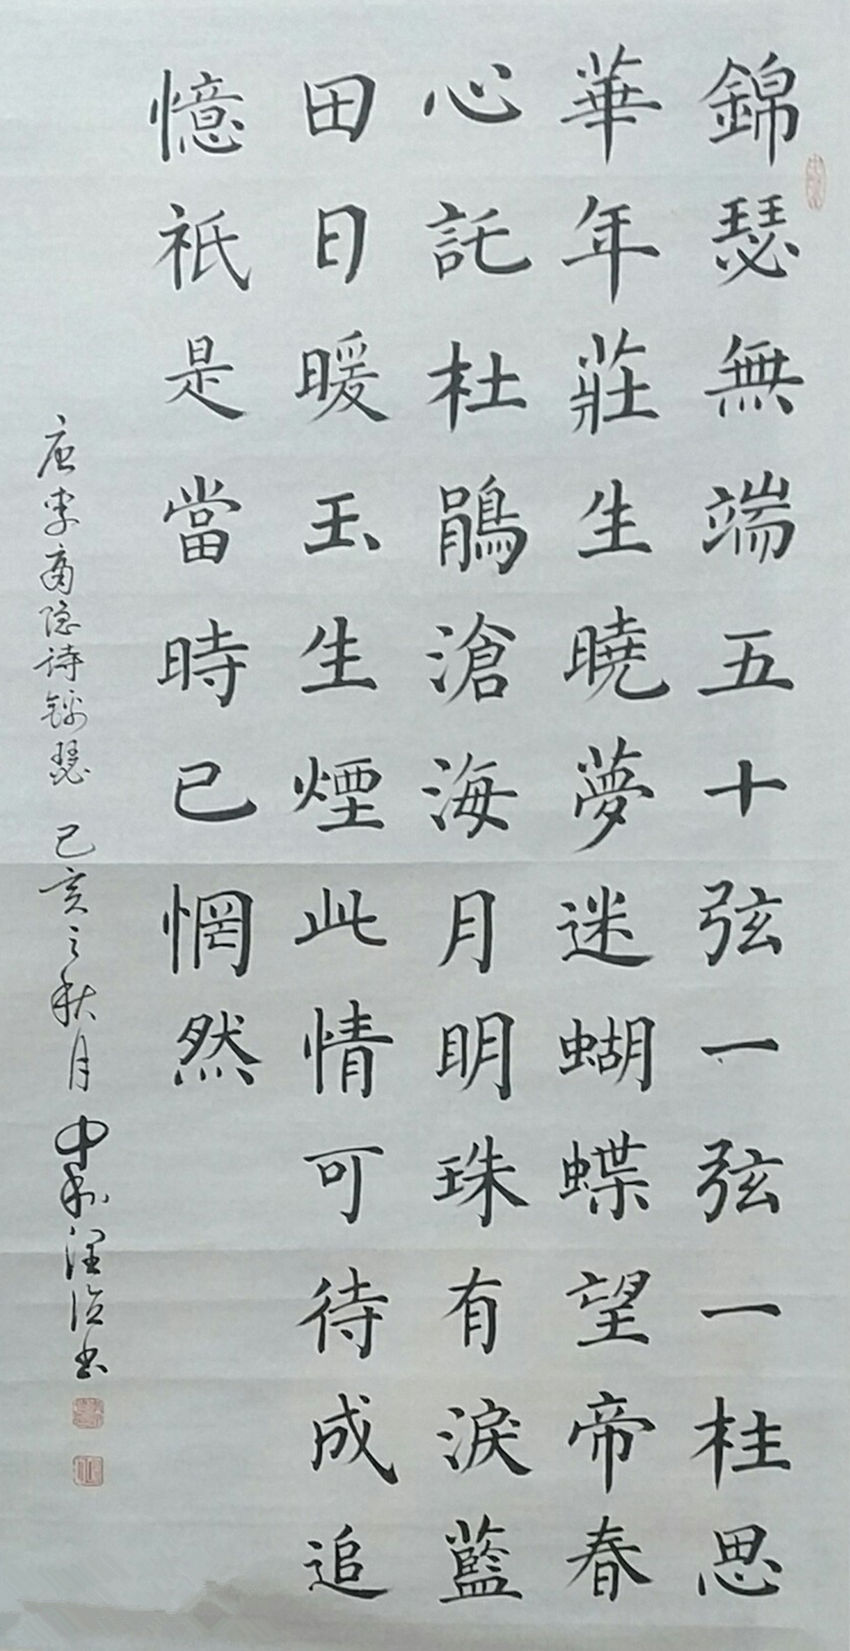 錦瑟無端五十弦一弦一柱思
華年莊生曉夢迷蝴蝶望帝春
心託杜鵑滄海月明珠有淚藍
田日暖玉生煙此情可待成追
憶祇是當時已惘然
唐李商隐诗錦瑟 己亥之秋月